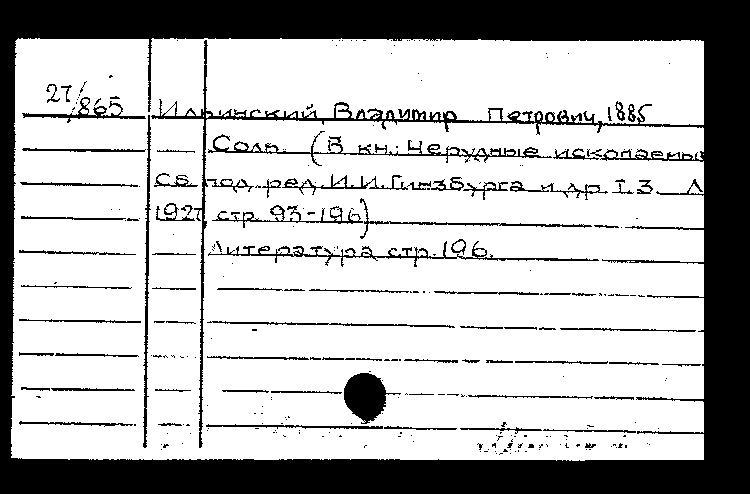 27/865 Ильинский, Владимир Петрович, 1885
Соль. (В кн.: Нерудные ископаемы
Сб под ред. И.И.Гинзбурга и др. Т.3. Л
1927, стр 93-196)
Литература стр. 196.